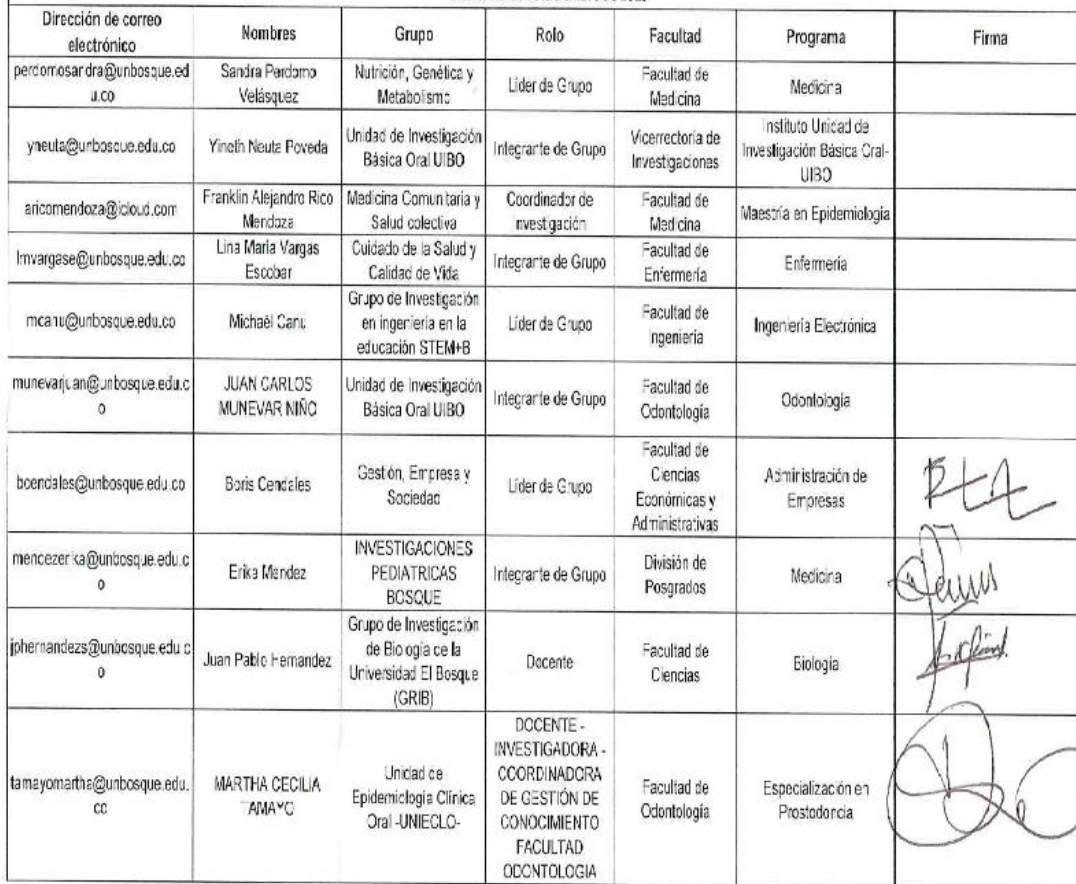 Dirección de correo electrónico | Nombres | Grupo | Rolo | Facultad | Programa | Firma
perdomosandra@unbosque.edu.co | Sandra Perdomo Velásquez | Nutrición, Genética y Metabolismo | Líder de Grupo | Facultad de Medicina | Medicina
yneuta@unbosque.edu.co | Yineth Neuta Poveda | Unidad de Investigación Básica Oral UIBO | Integrante de Grupo | Vicerrectoría de Investigaciones | Instituto Unidad de Investigación Básica Oral-UIBO
aricomendoza@icloud.com | Franklin Alejandro Rico Mendoza | Medicina Comunitaria y Salud colectiva | Coordinador de investigación | Facultad de Medicina | Maestría en Epidemiologia
lmvargase@unbosque.edu.co | Lina Maria Vargas Escobar | Cuidado de la Salud y Calidad de Vida | Integrante de Grupo | Facultad de Enfermería | Enfermería
mcanu@unbosque.edu.co | Michaël Canu | Grupo de Investigación en ingeniería en la educación STEM+B | Líder de Grupo | Facultad de Ingeniería | Ingeniería Electrónica
munevarjuan@unbosque.edu.co | JUAN CARLOS MUNEVAR NIÑO | Unidad de Investigación Básica Oral UIBO | Integrante de Grupo | Facultad de Odontología | Odontología
bcendales@unbosque.edu.co | Boris Cendales | Gestión, Empresa y Sociedad | Líder de Grupo | Facultad de Ciencias Económicas y Administrativas | Administración de Empresas
mendezerika@unbosque.edu.co | Erika Mendez | INVESTIGACIONES PEDIATRICAS BOSQUE | Integrante de Grupo | División de Posgrados | Medicina
jphernandezs@unbosque.edu.co | Juan Pablo Hernandez | Grupo de Investigación de Biología de la Universidad El Bosque (GRIB) | Docente | Facultad de Ciencias | Biología
tamayomartha@unbosque.edu.co | MARTHA CECILIA TAMAYO | Unidad de Epidemiología Clínica Oral -UNIECLO- | DOCENTE - INVESTIGADORA - COORDINADORA DE GESTIÓN DE CONOCIMIENTO FACULTAD ODONTOLOGIA | Facultad de Odontología | Especialización en Prostodoncia